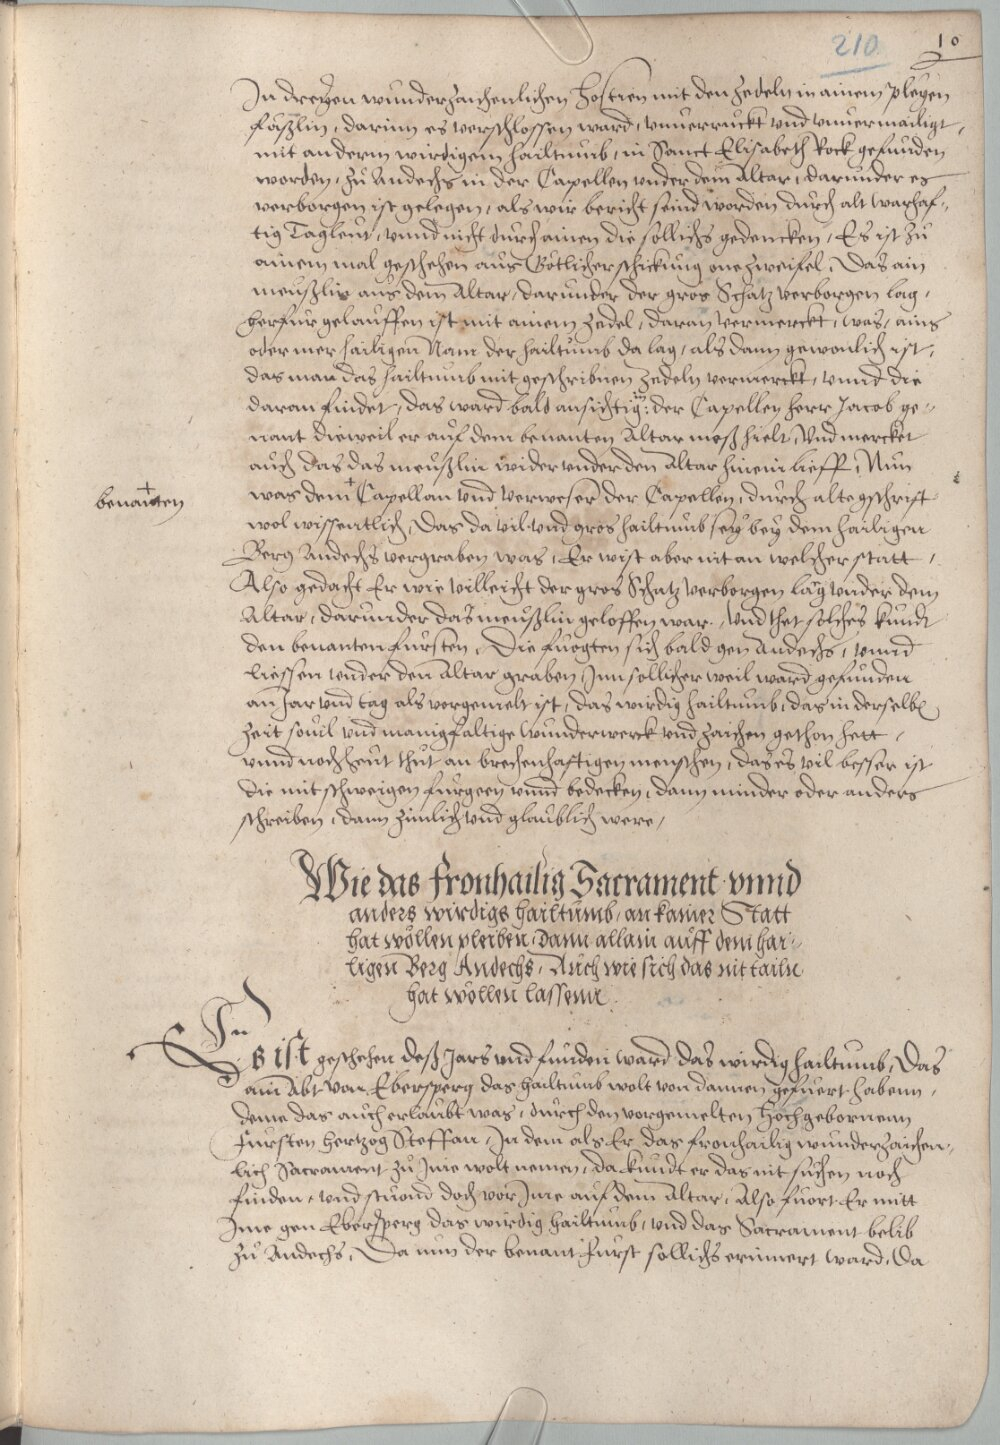 210 10
In dreyen wunderzaichenlichen Hostien mit den zedeln in ainem pleyen
fäszlin, darinn es verschlossen ward, unuerruckt und unuermailigt,
mit anderm wirdigem hailtumb, in Sanct Elisabeth Rock gefunden
worden, zu Andechs in der Capellen under dem Altar, darunder es
verborgen ist gelegen, als wir bericht seind worden durch alt warhaf-
tig Tagleut, unnd nicht durch ainen die sollichs gedencken, Es ist zu
ainem mal geschehen aus Götlicher schickung one zweifel, Das ain
meußlin aus dem Altar, darunder der gros Schatz verborgen lag,
herfur gelauffen ist mit ainem zedel, daran vermerckt, was, ains
oder mer hailigen Nam der hailtumb da lag, als dann gewonlich ist,
das man das hailtumb mit geschribnen zedeln vermerckt, unnd die
daran findet, das ward bald ansichtig in der Capellen herr Jacob ge-
nant dieweil er auf dem benanten Altar meß hielt, Und mercket
auch das das meußlin wider under den Altar hinein lieff, Nun
benanten
was dem + Capellan und verweser der Capellen, durch alte gschrift
wol wissentlich, Das da vil und gros hailtumb sey bey dem hailigen
Berg Andechs vergraben was, Er wist aber nit an welcher statt,
Also gedacht Er wie villeicht der gros Schatz verborgen läg under dem
Altar, darunder das meußlin geloffen war, Und thet solches kundt
den benanten fürsten, Die fuegten sich bald gen Andechs, unnd
liessen under den Altar graben, Inn sollicher weil ward gefunden
an Jar und tag als vorgemelt ist, das wirdig hailtumb, das in derselben
zeit souil und manigfaltige wunderwerck und zaichen gethon hett,
unnd noch heut thut an brechenhaftigen menschen, das es vil besser ist
die mit schweigen furgeen unnd bedecken, dann minder oder anders
schreiben, dann zimlich und glaublich were,
Wie das fronhailig Sacrament unnd
anders wirdigs hailtumb, an kainer Statt
hat wöllen pleiben, dann allain auff dem hai-
ligen Berg Andechs, Auch wie sich das nit tailn
hat wöllen lassenn.
In
Es ist geschehen deß Jars und funden ward das wirdig hailtumb, Das
ain Abt von Ebersperg das hailtumb wolt von dannen gefuert habenn,
deme das auch erlaubt was, durch den vorgemelten Hochgebornenn
Fursten hertzog Steffan, In dem als Er das fronhailig wunderzaichen-
lich Sacrament zu Ime wolt nemen, da kundt er das nit suchen noch
finden, und stuond doch vor Ime auf dem Altar, Also fuort Er mitt
Ime gen Ebersperg das wirdig hailtumb, und das Sacrament belib
zu Andechs, Da nun der benant Furst sollichs erinnert ward, Da